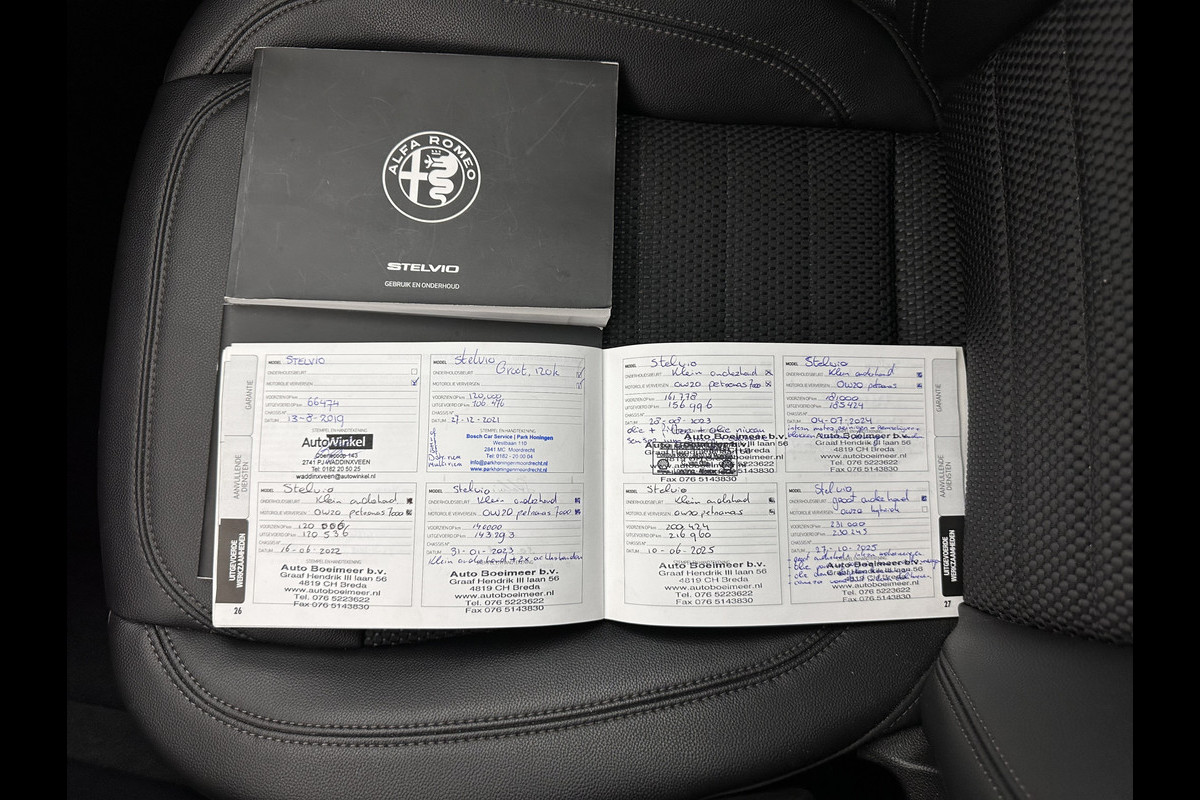 ALFA ROMEO
STELVIO
GEBRUIK EN ONDERHOUD
GARANTIE
AANVULLENDE DIENSTEN
UITGEVOERDE WERKZAAMHEDEN
26
MODEL STELVIO
ONDERHOUDSBEURT
MOTOROLIE VERVERSEN
VOORZIEN OP km
UITGEVOERD OP km 66474
CHASSIS N°
DATUM 13-8-2019
STEMPEL EN HANDTEKENING
AutoWinkel
Coenecoop 143
2741 PJ WADDINXVEEN
Tel: 0182 50 50 25
waddinxveen@autowinkel.nl
MODEL Stelvio
Groot, 120k
ONDERHOUDSBEURT
MOTOROLIE VERVERSEN
VOORZIEN OP km 120,000
UITGEVOERD OP km 106 476
CHASSIS N°
DATUM 27-12-2021
STEMPEL EN HANDTEKENING
Bosch Car Service | Park Honingen
Westbaan 110
2841 MC Moordrecht
Tel: 0182 - 20 00 04
info@parkhoningenmoordrecht.nl
www.parkhoningenmoordrecht.nl
MODEL Stelvio
ONDERHOUDSBEURT Klein onderhoud
MOTOROLIE VERVERSEN OW20 petronas 7000
VOORZIEN OP km 120 000
UITGEVOERD OP km 120 536
CHASSIS N°
DATUM 16-06-2022
Auto Boeimeer b.v.
Graaf Hendrik III laan 56
4819 CH Breda
www.autoboeimeer.nl
Tel. 076 5223622
Fax 076 5143830
MODEL Stelvio
ONDERHOUDSBEURT Klein onderhoud
MOTOROLIE VERVERSEN OW20 petronas 7000
VOORZIEN OP km 140000
UITGEVOERD OP km 143293
CHASSIS N°
DATUM 31-01-2023
Klein onderhoud + 2x
Auto Boeimeer b.v.
Graaf Hendrik III laan 56
4819 CH Breda
www.autoboeimeer.nl
Tel. 076 5223622
Fax 076 5143830
MODEL Stelvio
ONDERHOUDSBEURT Klein onderhoud
MOTOROLIE VERVERSEN OW20 petronas 7000
VOORZIEN OP km 161.778
UITGEVOERD OP km 156996
CHASSIS N°
DATUM 28-08-2023
olie + filter + olie niveau
sensor
Auto Boeimeer b.v.
Graaf Hendrik III laan 56
4819 CH Breda
www.autoboeimeer.nl
Tel. 076 5223622
Fax 076 5143830
MODEL Stelvio
ONDERHOUDSBEURT Klein onderhoud
MOTOROLIE VERVERSEN OW20 petronas
VOORZIEN OP km 181000
UITGEVOERD OP km 185424
CHASSIS N°
DATUM 04-07-2024
Auto Boeimeer b.v.
Graaf Hendrik III laan 56
4819 CH Breda
www.autoboeimeer.nl
Tel. 076 5223622
Fax 076 5143830
MODEL Stelvio
ONDERHOUDSBEURT Klein onderhoud
MOTOROLIE VERVERSEN OW20 petronas
VOORZIEN OP km 200,424
UITGEVOERD OP km 216960
CHASSIS N°
DATUM 10-06-2025
Auto Boeimeer b.v.
Graaf Hendrik III laan 56
4819 CH Breda
www.autoboeimeer.nl
Tel. 076 5223622
Fax 076 5143830
MODEL Stelvio
ONDERHOUDSBEURT groot onderhoud
MOTOROLIE VERVERSEN OW20
VOORZIEN OP km 231000
UITGEVOERD OP km 230245
CHASSIS N°
DATUM 27-10-2025
groot onderhoud
Auto Boeimeer b.v.
Graaf Hendrik III laan 56
4819 CH Breda
www.autoboeimeer.nl
Tel. 076 5223622
Fax 076 5143830
GARANTIE
AANVULLENDE DIENSTEN
UITGEVOERDE WERKZAAMHEDEN
27